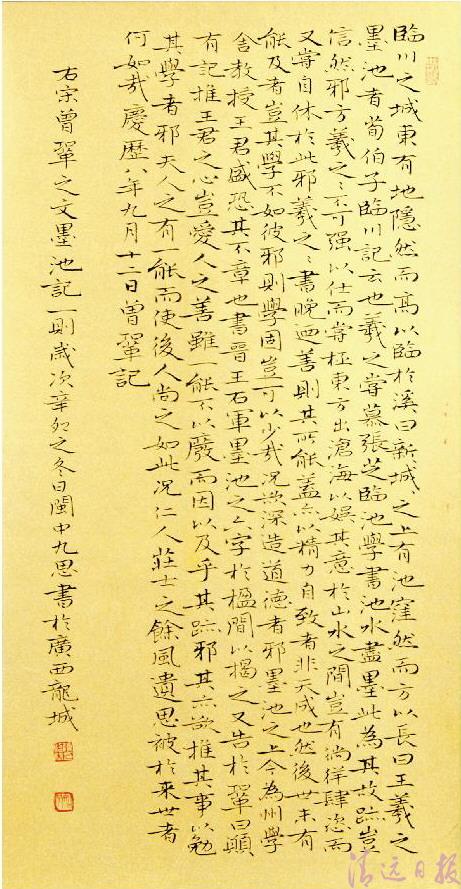 臨川之城東有地隱然而高以臨於溪曰新城々之上有池窪然而方以長曰王羲之
墨池者荀伯子臨川記云也羲之嘗慕張芝臨池學書池水盡墨此為其故跡豈
信然邪方羲之々不可强以仕而嘗極東方出滄海以娛其意於山水之間豈有徜徉肆恣而
又嘗自休於此邪羲之々書晚迺善則其所能蓋亦以精力自致者非天成也然後世未有
能及者豈其學不如彼邪則學固豈可以少哉况欲深造道德者邪墨池之上今為州學
舍教授王君盛恐其不章也書晉王右軍墨池之六字於楹間以揭之又告於鞏曰願
有記推王君之心豈愛人之善雖一能不以廢而因以及乎其跡邪其亦欲推其事以勉
其學者邪夫人之有一能而使後人尚之如此况仁人莊士之餘風遺思被於來世者
何如哉慶歷八年九月十二日曾鞏記
右宗曾鞏之文墨池記一則歲次辛卯之冬日閩中九思書於廣西龍城
清远日报